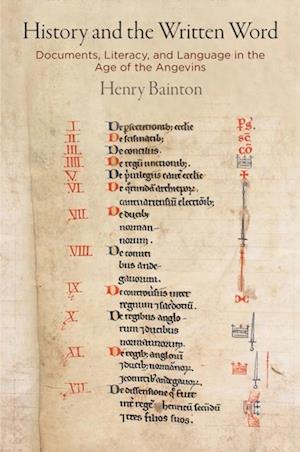 History and the Written Word
Documents, Literacy, and Language in the
Age of the Angevins
Henry Bainton
I. De p̄secutionib; ecclie p̄s.
II. De scismatib; sc̄
III. De conciliis. cō
IIII. De regū unctionib;
V. De p̄uilegiis cant̄ ecclie
VI. De archiepor.
cantuariensiū electōib;
VII. De ducib;
norman-
norum.
VIII. De comiti
bus ande-
gauorum.
IX. De inter
regnum ⁊ sacdotiū.
X. De regibus anglo-
rum ⁊ ducibus
normannorum.
XI. De regib; anglorū
⁊ ducib; normānor.
⁊ comitib; andegauor.
XII. De dissensione q̄ fuit
int̄ regē henricū secūdū
⁊ tres filios suos.